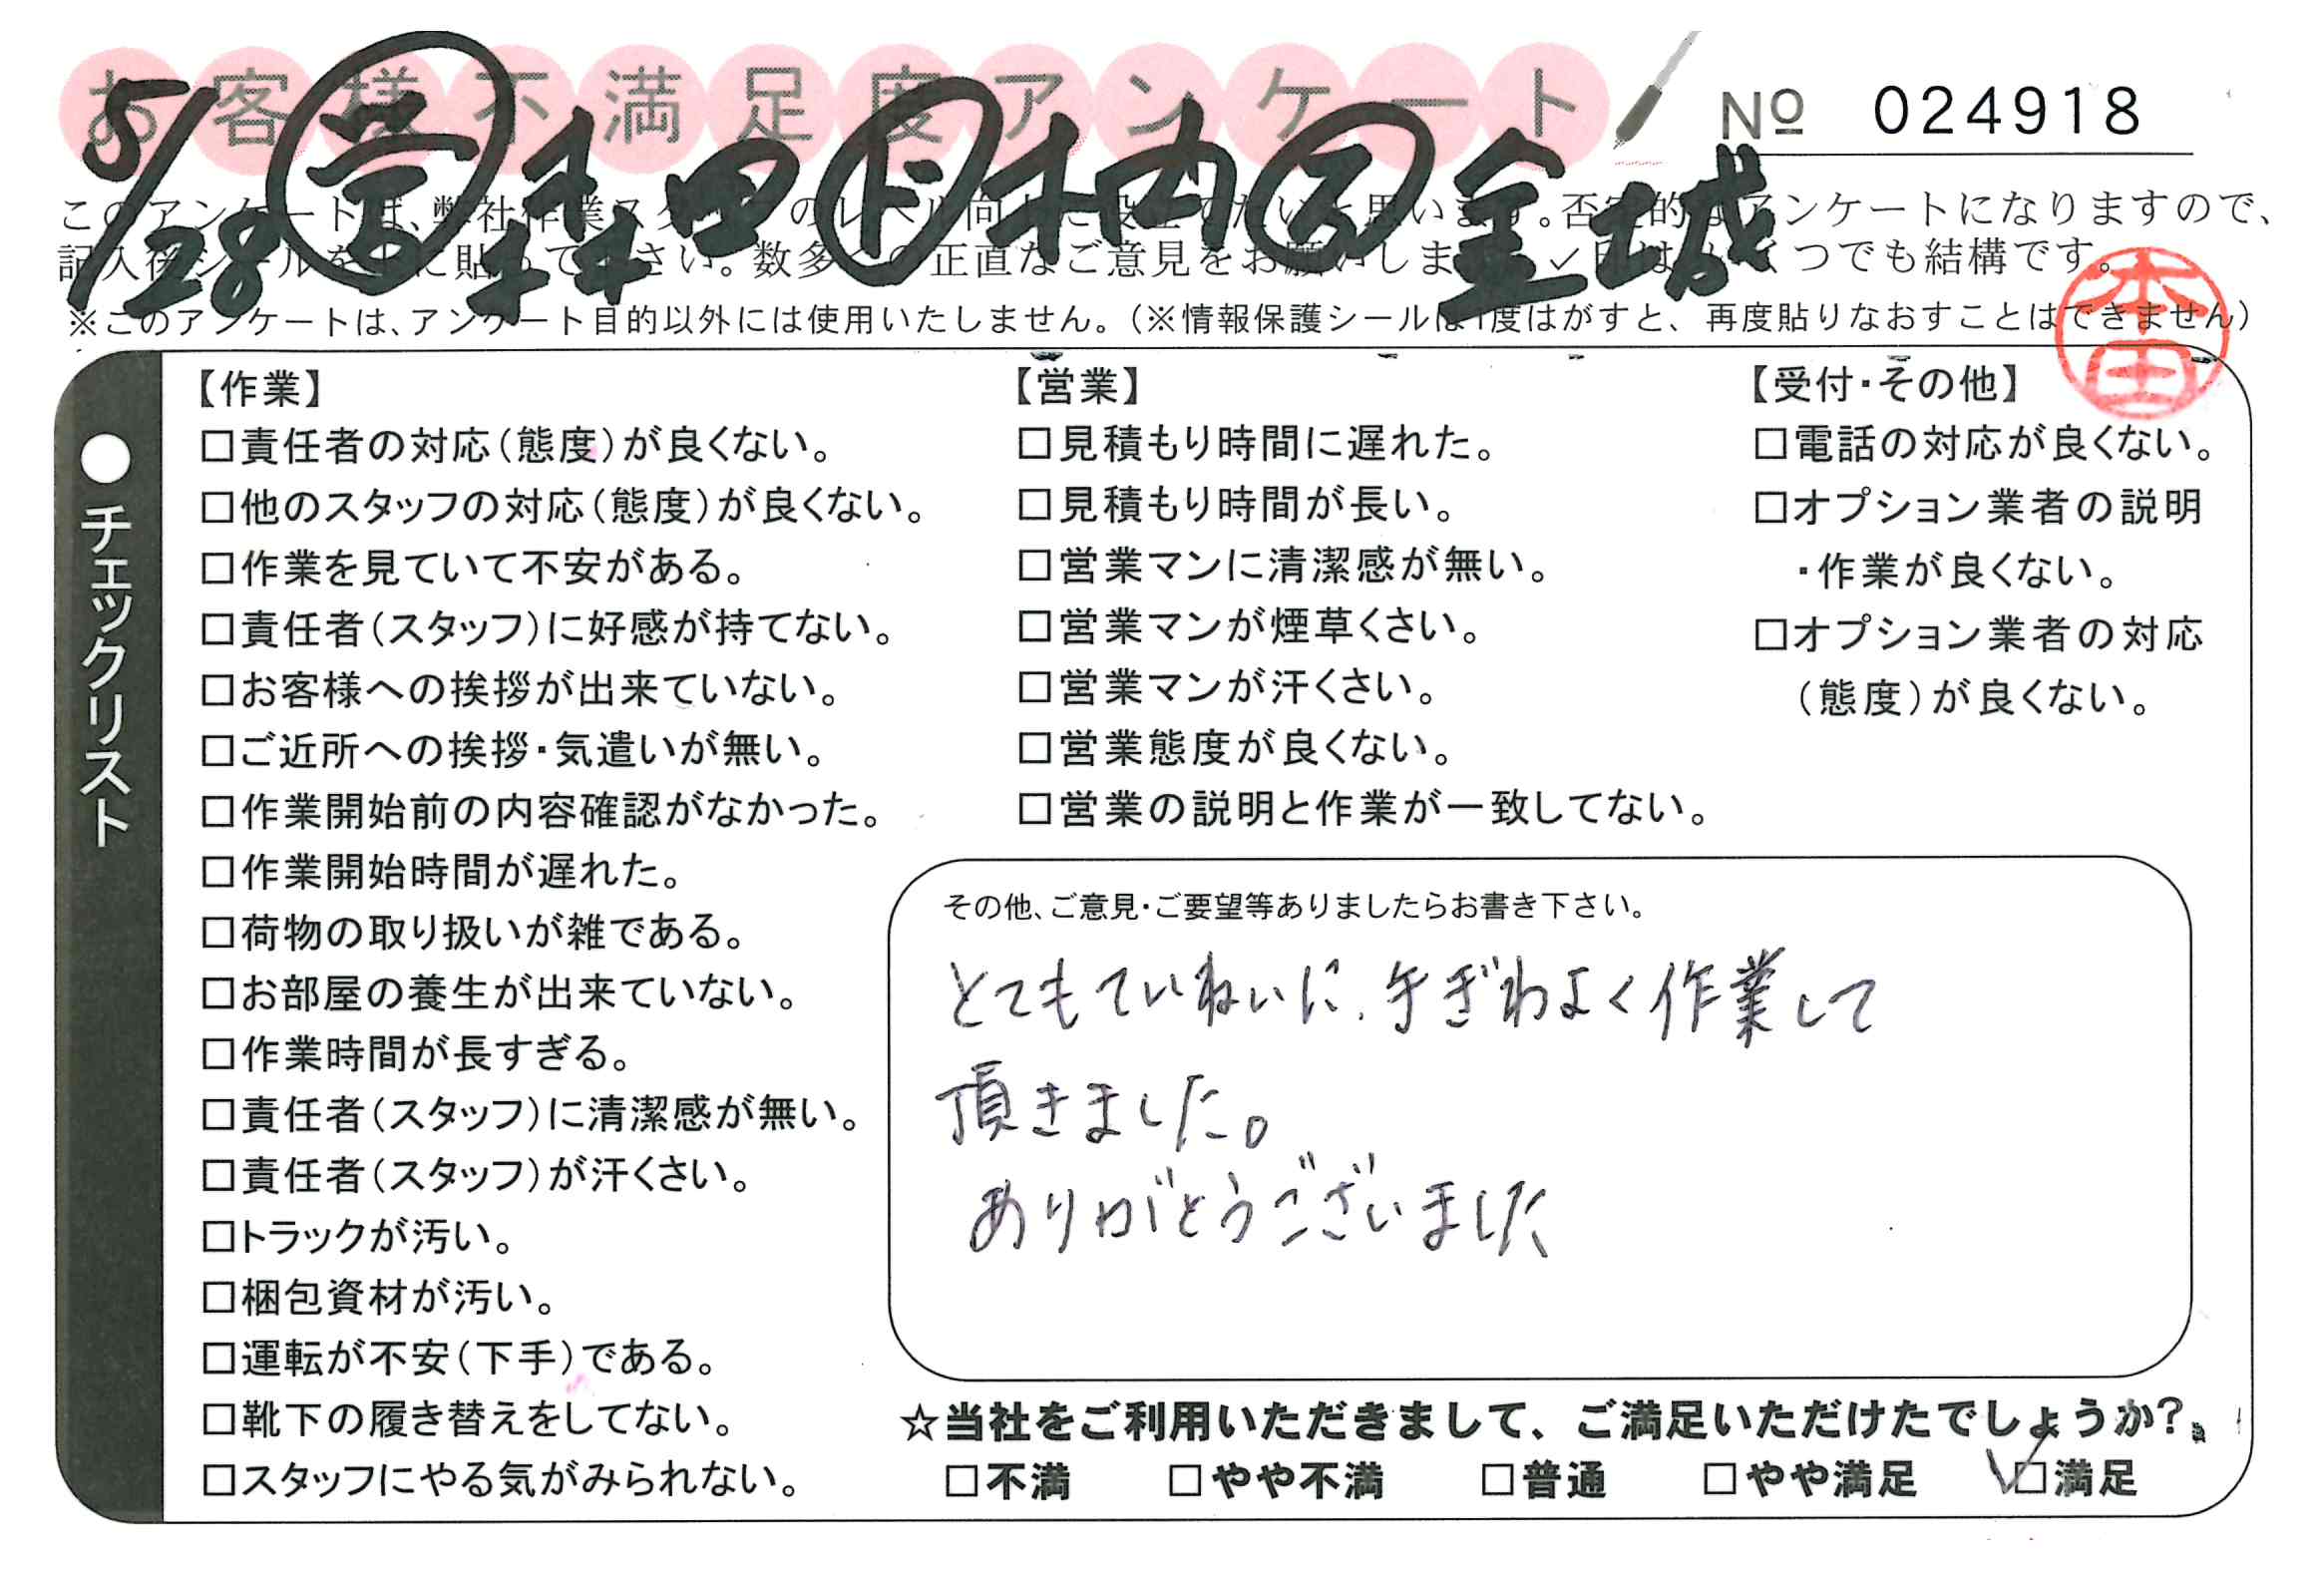 お客様不満足度アンケート
№ 024918
5/28 営 森田 ト 本城 助 金城
このアンケートは、弊社作業スタッフのレベル向上に役立てたいと思います。否定的なアンケートになりますので、
記入後シールを上に貼って下さい。数多くの正直なご意見をお願いします。✓印はいくつでも結構です。
※このアンケートは、アンケート目的以外には使用いたしません。(※情報保護シールは1度はがすと、再度貼りなおすことはできません)
本田
●チェックリスト
【作業】
□責任者の対応(態度)が良くない。
□他のスタッフの対応(態度)が良くない。
□作業を見ていて不安がある。
□責任者(スタッフ)に好感が持てない。
□お客様への挨拶が出来ていない。
□ご近所への挨拶・気遣いが無い。
□作業開始前の内容確認がなかった。
□作業開始時間が遅れた。
□荷物の取り扱いが雑である。
□お部屋の養生が出来ていない。
□作業時間が長すぎる。
□責任者(スタッフ)に清潔感が無い。
□責任者(スタッフ)が汗くさい。
□トラックが汚い。
□梱包資材が汚い。
□運転が不安(下手)である。
□靴下の履き替えをしてない。
□スタッフにやる気がみられない。
【営業】
□見積もり時間に遅れた。
□見積もり時間が長い。
□営業マンに清潔感が無い。
□営業マンが煙草くさい。
□営業マンが汗くさい。
□営業態度が良くない。
□営業の説明と作業が一致してない。
【受付・その他】
□電話の対応が良くない。
□オプション業者の説明
・作業が良くない。
□オプション業者の対応
(態度)が良くない。
その他、ご意見・ご要望等ありましたらお書き下さい。
とてもていねいに、手ぎわよく作業して
頂きました。
ありがとうございました
☆当社をご利用いただきまして、ご満足いただけたでしょうか?
□不満 □やや不満 □普通 □やや満足 ✓□満足